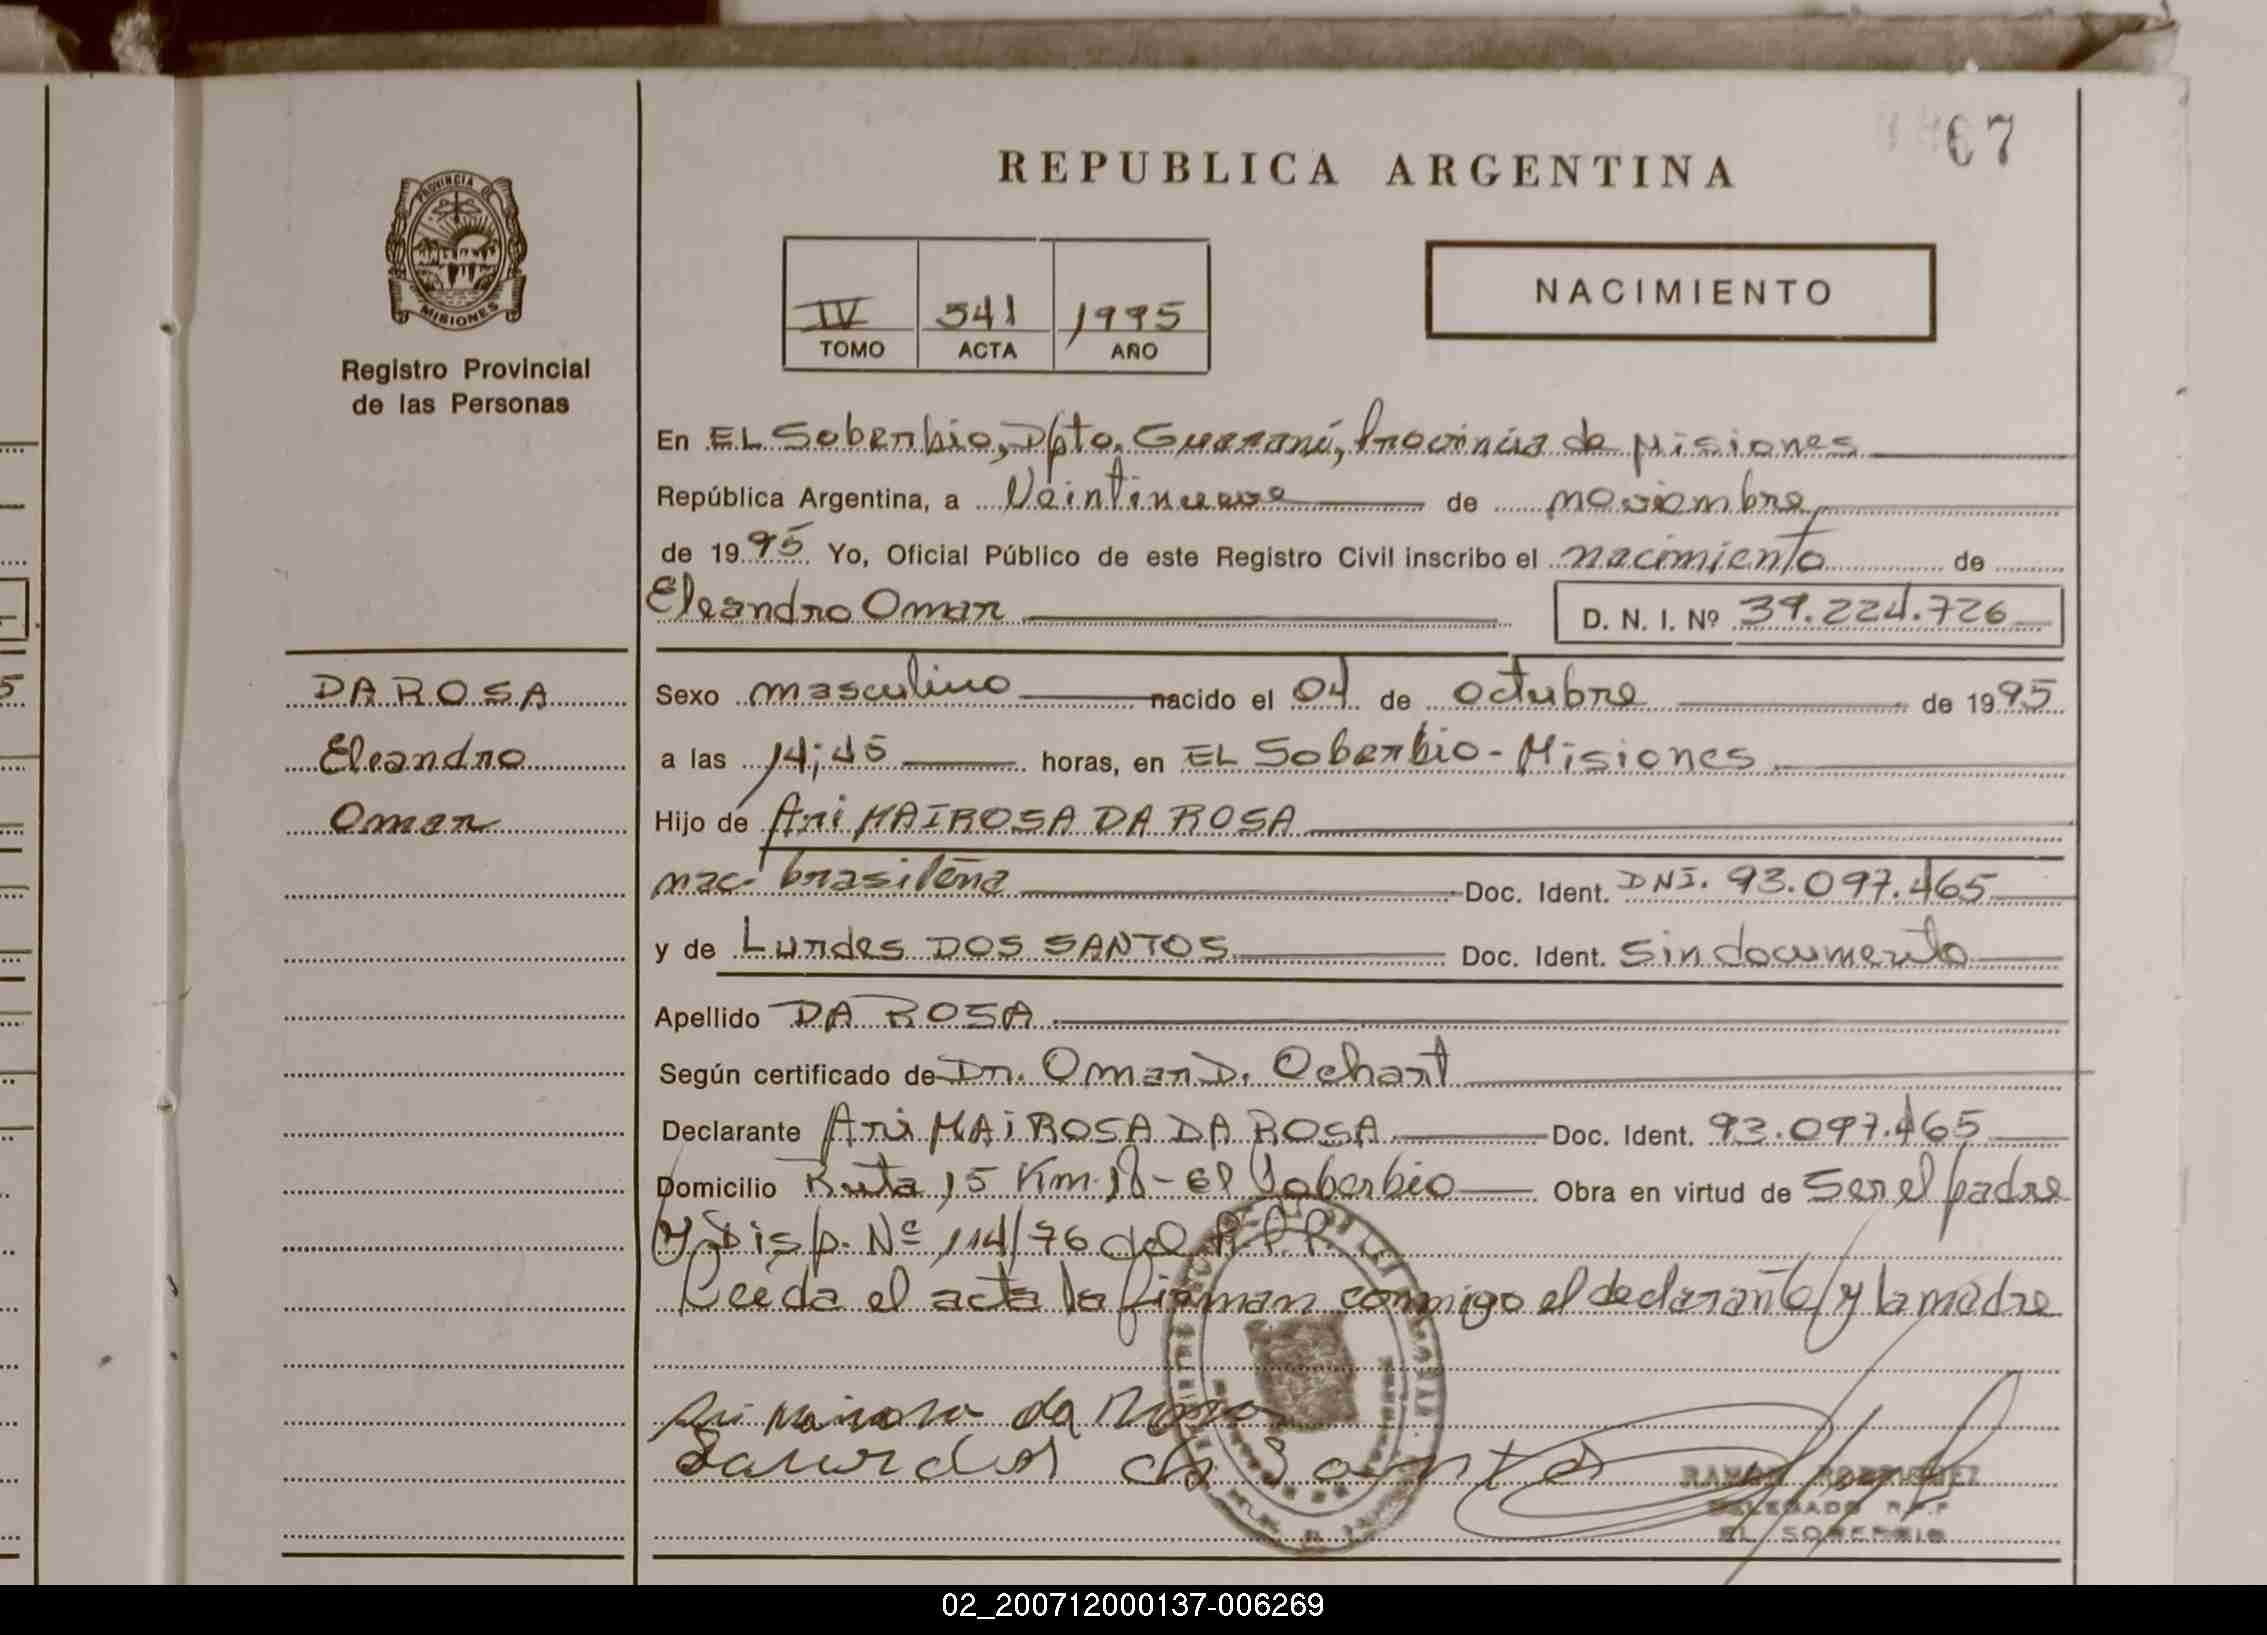 67
REPUBLICA ARGENTINA
PROVINCIA DE
MISIONES
Registro Provincial
de las Personas
IV 541 1995
TOMO ACTA AÑO
NACIMIENTO
En EL Soberbio, Dpto. Guaraní, Provincia de Misiones
República Argentina, a Veintinueve de noviembre
de 1995 Yo, Oficial Público de este Registro Civil inscribo el nacimiento de
Eleandro Omar D. N. I. Nº 39.224.726
DA ROSA
Eleandro
Omar
Sexo masculino nacido el 04 de octubre de 1995
a las 14:45 horas, en EL Soberbio - Misiones
Hijo de Ari MAIROSA DA ROSA
nac. brasileña Doc. Ident. DNI. 93.097.465
y de Lurdes DOS SANTOS Doc. Ident. Sin documento
Apellido DA ROSA
Según certificado de Dr. Omar D. Ochart
Declarante Ari MAIROSA DA ROSA Doc. Ident. 93.097.465
Domicilio Ruta 15 Km. 18 - El Soberbio Obra en virtud de Ser el padre
y Disp. Nº 114/76 del R.P.P.
Leída el acta la firman conmigo el declarante y la madre
da Rosa
RAMON RODRIGUEZ
DELEGADO R.P.P
EL SOBERBIO
02_200712000137-006269